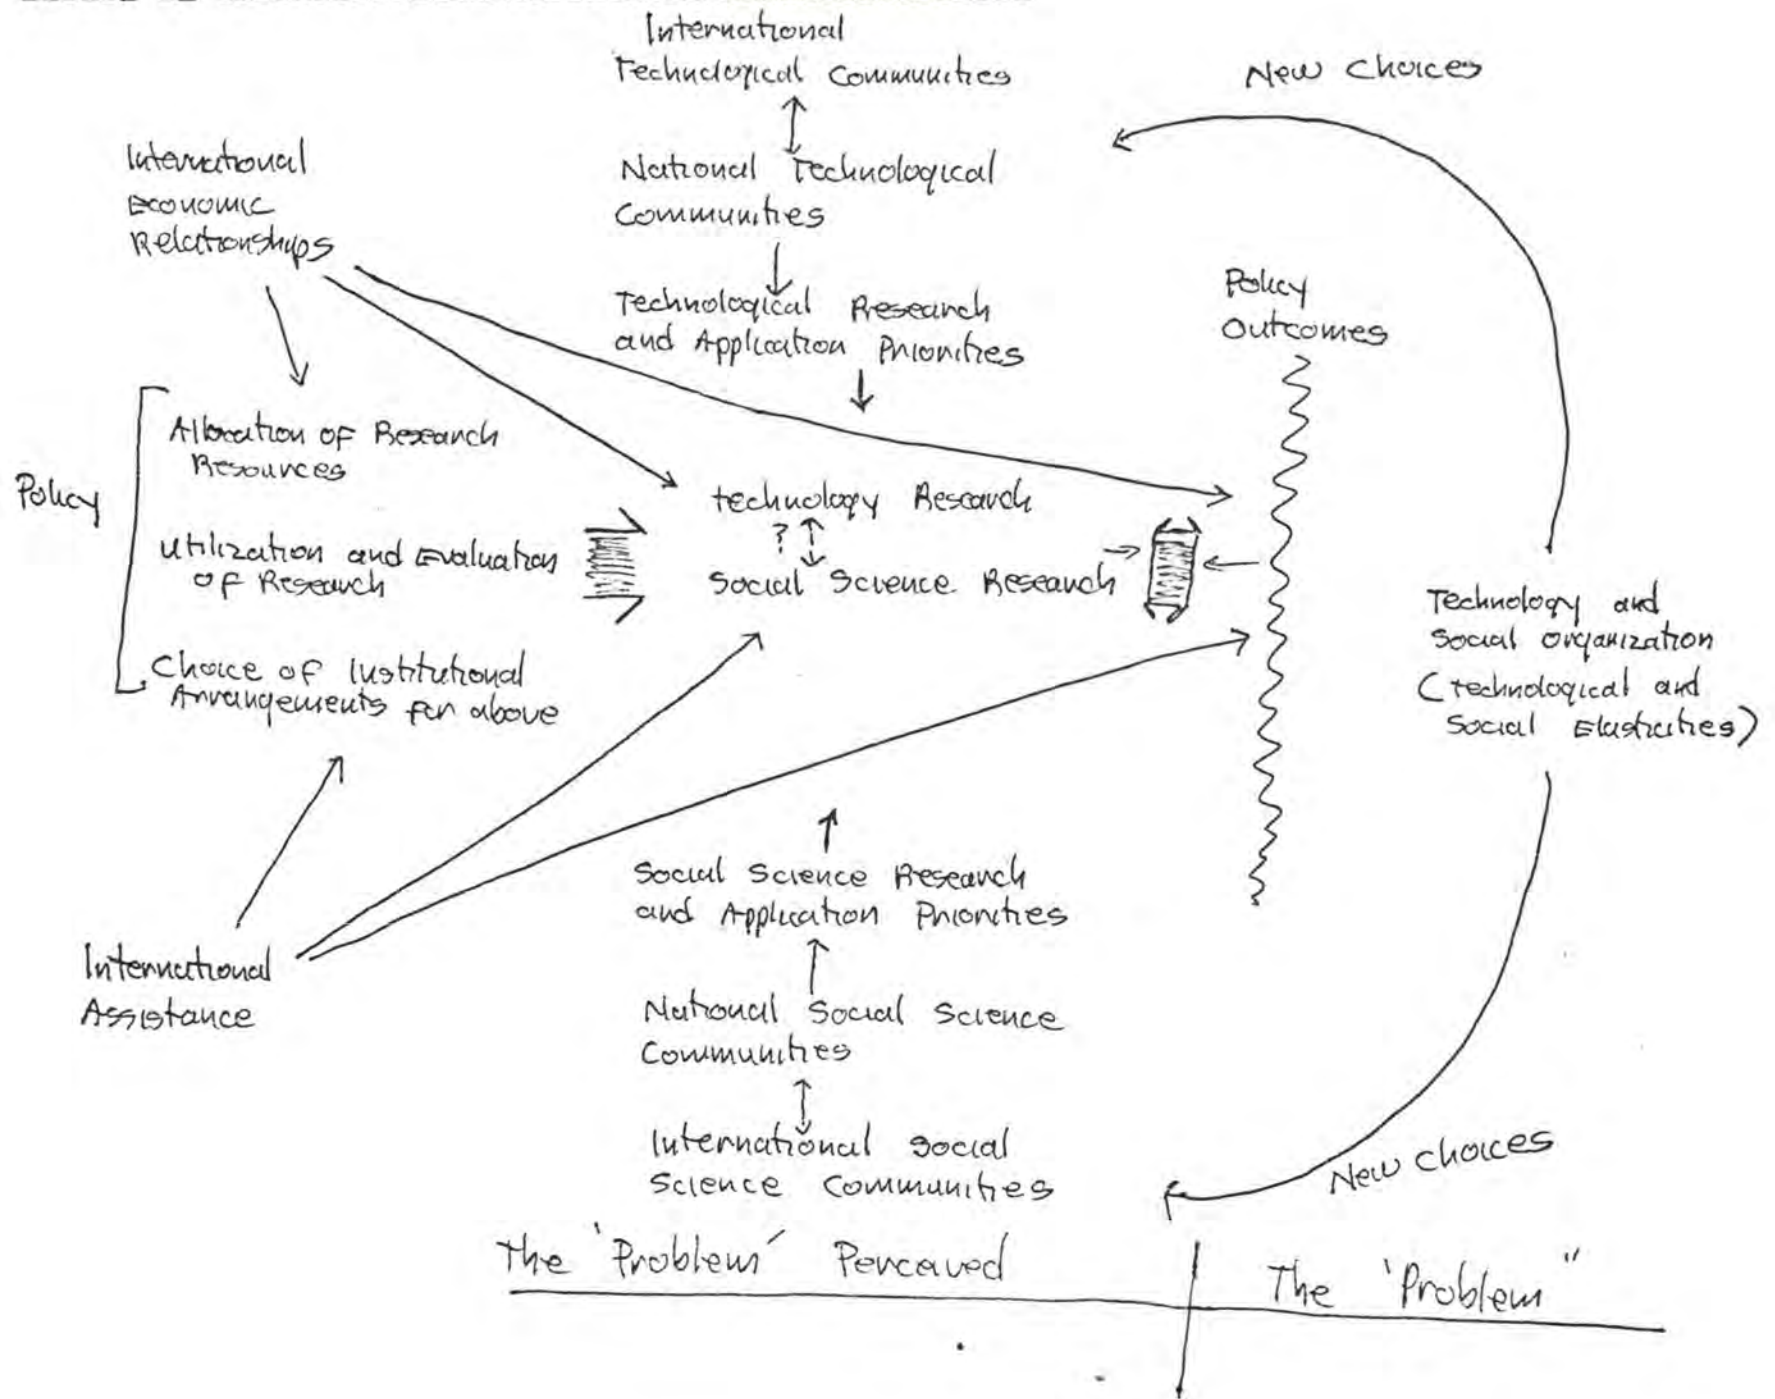 International
Technological Communities
New Choices
International
Economic
Relationships
National Technological
Communities
Technological Research
and Application Priorities
Policy
Outcomes
Policy
Allocation of Research
Resources
Utilization and Evaluation
of Research
Choice of Institutional
Arrangements for above
technology Research
?
Social Science Research
Technology and
Social Organization
(technological and
Social Elasticities)
Social Science Research
and Application Priorities
International
Assistance
National Social Science
Communities
International Social
Science Communities
New Choices
The 'Problem' Perceived
The 'Problem"